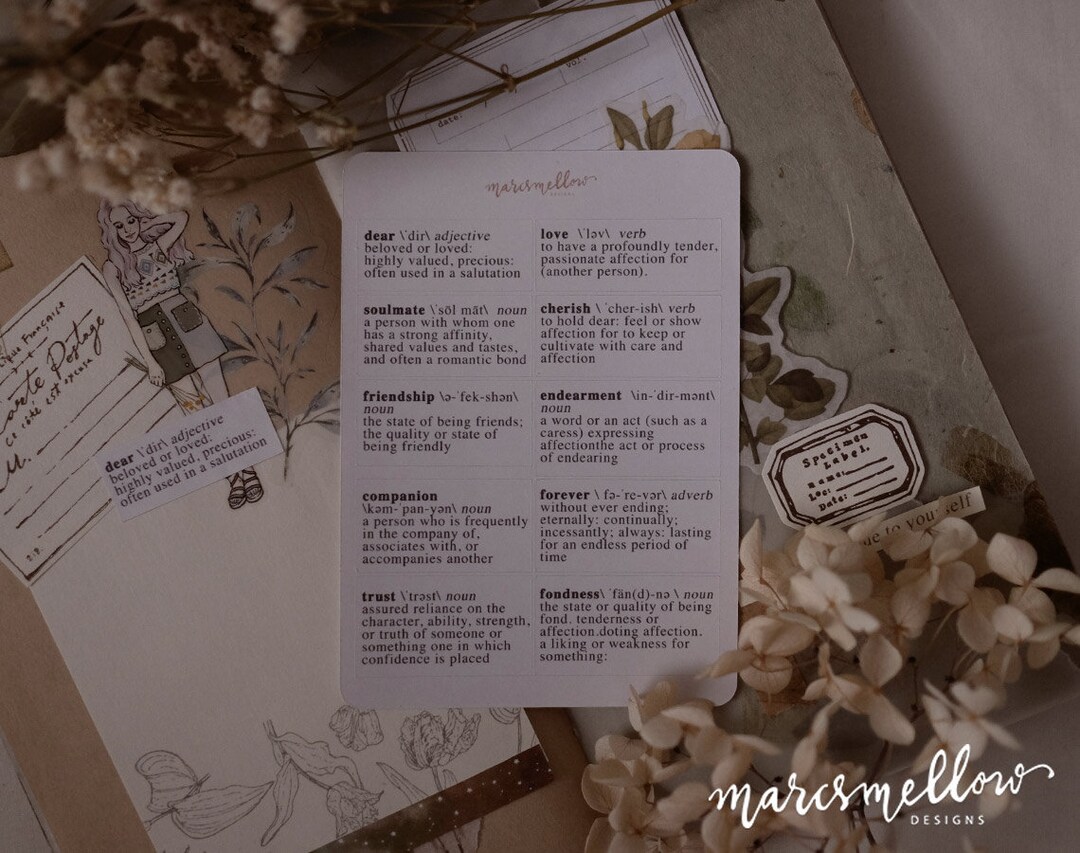 date:
vol.
marcsmellow
DESIGNS
dear \ˈdir\ adjective
beloved or loved:
highly valued, precious:
often used in a salutation
love \ˈləv\ verb
to have a profoundly tender,
passionate affection for
(another person).
soulmate \ˈsōl māt\ noun
a person with whom one
has a strong affinity,
shared values and tastes,
and often a romantic bond
cherish \ ˈcher-ish\ verb
to hold dear: feel or show
affection for to keep or
cultivate with care and
affection
friendship \ə-ˈfek-shən\
noun
the state of being friends;
the quality or state of
being friendly
endearment \in-ˈdir-mənt\
noun
a word or an act (such as a
caress) expressing
affectionthe act or process
of endearing
companion
\kəm-ˈpan-yən\ noun
a person who is frequently
in the company of,
associates with, or
accompanies another
forever \ fə-ˈre-vər\ adverb
without ever ending;
eternally: continually;
incessantly; always: lasting
for an endless period of
time
trust \ˈtrəst\ noun
assured reliance on the
character, ability, strength,
or truth of someone or
something one in which
confidence is placed
fondness\ ˈfän(d)-nə \ noun
the state or quality of being
fond. tenderness or
affection.doting affection.
a liking or weakness for
something:
Française
Carte Postage
Ce côté est
M.
dear \ˈdir\ adjective
beloved or loved:
highly valued, precious:
often used in a salutation
Specimen
Label.
Name:
Loc:
Date:
to yourself
marcsmellow
DESIGNS